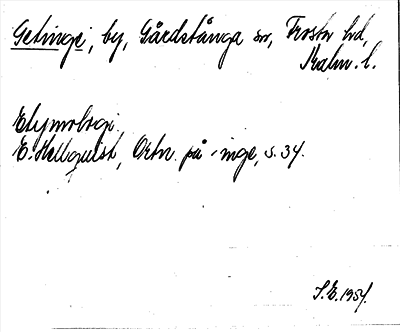 Getinge, by, Gårdstånga sn, Frosta hd,
Malm. l.
Etymologi.
E. Hellquist, Ortn. på -inge, s. 34.
S.E. 1954.